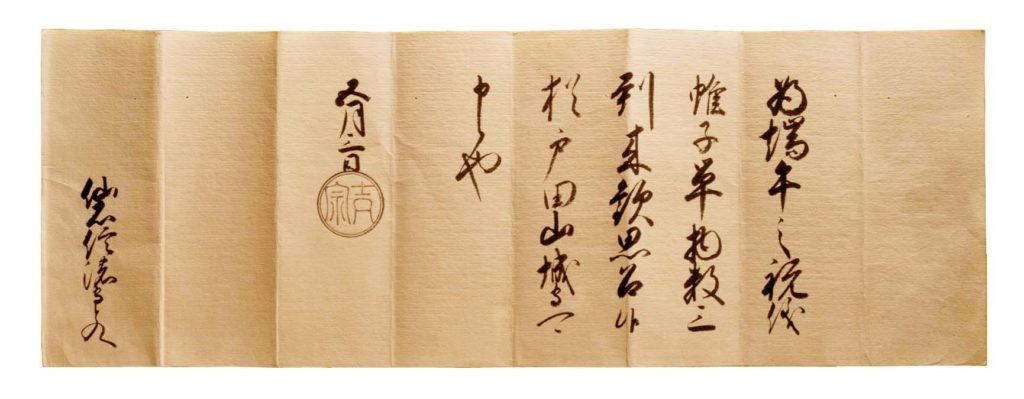 為端午之祝儀
帷子単物数三
到来歓思召候
猶戸田山城守可
申候也
五月三日
吉宗
信濃守